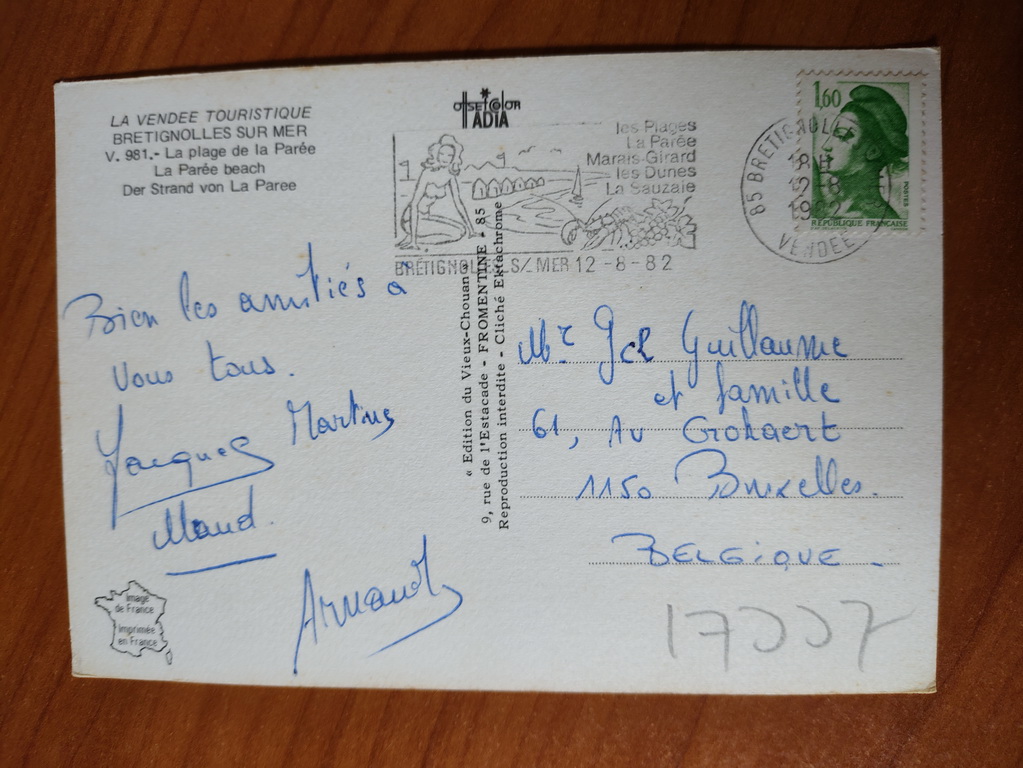 LA VENDEE TOURISTIQUE
BRETIGNOLLES SUR MER
V. 981.- La plage de la Parée
La Parée beach
Der Strand von La Paree
OFFSET COLOR
ADIA
les Plages
La Parée
Marais-Girard
les Dunes
La Sauzaie
BRETIGNOLLES S/MER 12-8-82
1,60
POSTES
REPUBLIQUE FRANÇAISE
85 BRETIGNOLLES
18H
12-8
1982
VENDEE
Bien les amitiés à
vous tous.
Jacques Martins
Maud.
Arnaud
« Edition du Vieux-Chouan »
9, rue de l'Estacade - FROMENTINE - 85
Reproduction interdite - Cliché Ektachrome
Mr Guillaume
et famille
61, Av
1150 Bruxelles.
BELGIQUE -
Image
de France
Imprimée
en France